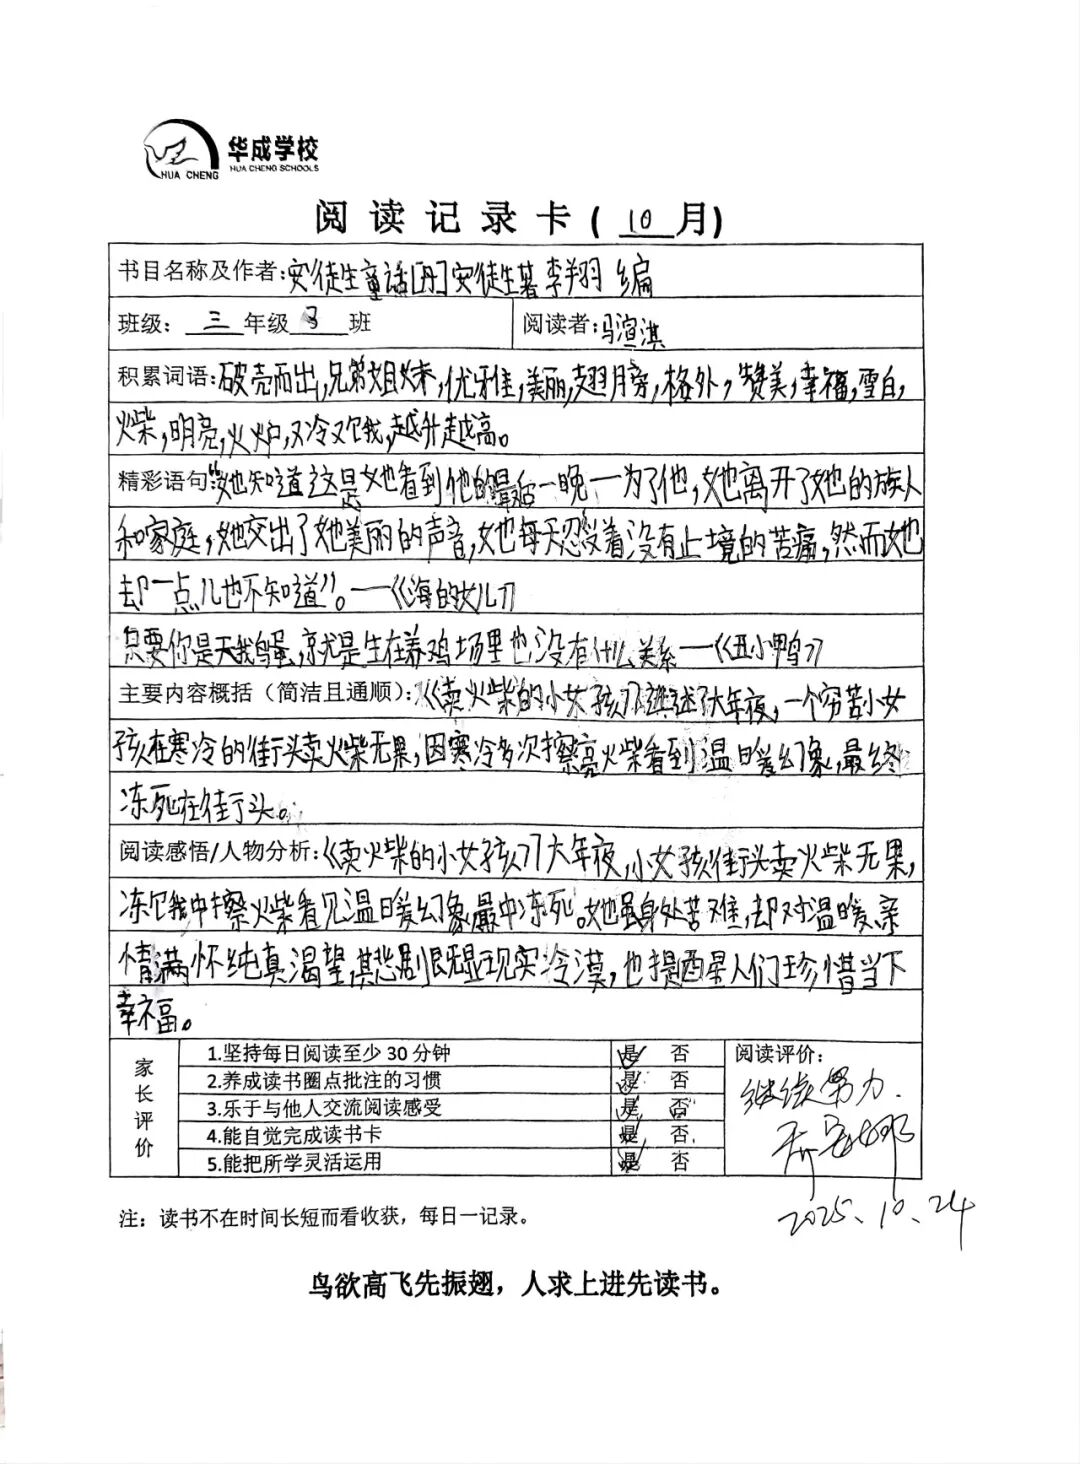 华成学校
HUA CHENG SCHOOLS
HUA CHENG
阅读记录卡(10月)
书目名称及作者:安徒生童话[丹]安徒生著李翔 编
班级: 三 年级 3 班 阅读者:马渲淇
积累词语:破壳而出,兄弟姐妹,优雅佳,美丽,翅膀,格外,赞美,幸福,雪白,
火柴,明亮,火炉,又冷又饿,越升越高。
精彩语句"她知道这是她看到他的最后一晚一为了他,她离开了她的族人
和家庭,她交出了她美丽的声音,她每天忍受着没有止境的苦痛,然而她
却一点儿也不知道"。—《海的女儿》
只要你是天鹅蛋,就是生在养鸡场里也没有什么关系—《丑小鸭》
主要内容概括(简洁且通顺):《卖火柴的小女孩》讲述了大年夜,一个穷苦小女
孩在寒冷的街头卖火柴无果,因寒冷多次擦亮火柴看到温暖幻象,最终
冻死在街头。
阅读感悟/人物分析:《卖火柴的小女孩》大年夜,小女孩街头卖火柴无果,
冻饿中擦火柴看见温暖幻象最中冻死。她虽身处苦难,却对温暖、亲
情满怀纯真渴望,其悲剧既显现实冷漠,也提醒人们珍惜当下
幸福。
家长评价
1.坚持每日阅读至少30分钟 是 否 阅读评价:
2.养成读书圈点批注的习惯 是 否 继续努力.
3.乐于与他人交流阅读感受 是 否
4.能自觉完成读书卡 是 否
5.能把所学灵活运用 是 否
注:读书不在时间长短而看收获,每日一记录。
2025.10.24
鸟欲高飞先振翅,人求上进先读书。